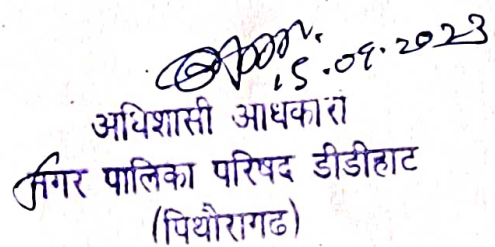 15.09.2023
अधिशासी आधकारी
नगर पालिका परिषद डीडीहाट
(पिथौरागढ)